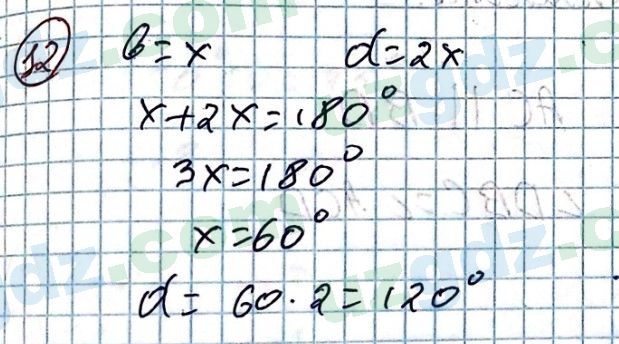 12 b = x d = 2x
x + 2x = 180°
3x = 180°
x = 60°
d = 60 · 2 = 120°